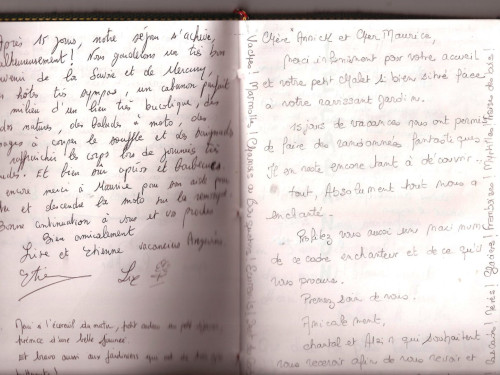 Après 15 jours, notre séjour s'achève,
malheureusement! Nous garderons un très bon
souvenir de la Savoie et de Mercury,
hôtes très sympas, un cabanon parfait
milieu d'un lieu très bucolique, des
natures, des balades à moto, des
à couper le souffle et des
raffraichir les corps lors de journées très
Et bien sûr apéros et barbecues
encore merci à Maurice pour son aide pour
et descendre la moto sur la remorque.
Bonne continuation à vous et vos proches
Bien amicalement
Lise et Etienne vacanciers Angevins
Merci à l'écureuil du matin, petit
prémice d'une belle journée.
et bravo aussi aux jardiniers qui
Chère Annick et Cher Maurice,
Merci infiniment pour votre accueil
et votre petit chalet si bien situé face
à notre ravissant Jardin.
15 jours de vacances nous ont permis
de faire des randonnées fantastiques
Il en reste encore tant à découvrir...
tout, Absolument tout nous a
enchanté.
Profitez vous aussi un maximum
de ce cadre enchanteur et de ce qu'il
vous procure.
Prenez soin de vous.
Amicalement,
chantal et Alain qui souhaitent
vous recevoir afin de vous revoir et
Vaches! Marmottes!
Framboises! Myrtilles!